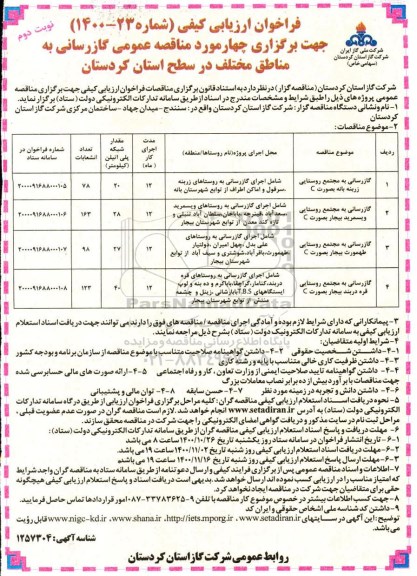 شرکت ملی گاز ایران
شرکت گاز استان کردستان
(سهامی خاص)
نوبت دوم
فراخوان ارزیابی کیفی (شماره ۲۳-۱۴۰۰)
جهت برگزاری چهار مورد مناقصه عمومی گازرسانی به
مناطق مختلف در سطح استان کردستان
شرکت گاز استان کردستان (مناقصه گزار) در نظر دارد به استناد قانون برگزاری مناقصات فراخوان ارزیابی کیفی جهت برگزاری مناقصه
عمومی پروژه های ذیل را طبق شرایط و مشخصات مندرج در اسناد از طریق سامانه تدارکات الکترونیکی دولت (ستاد) برگزار نماید.
۱-نام و نشانی دستگاه مناقصه گزار: شرکت گاز استان کردستان واقع در: سنندج-میدان جهاد-ساختمان مرکزی شرکت گاز استان
کردستان
۲-موضوع مناقصات:
ردیف
موضوع مناقصه
محل اجرای پروژه(نام روستاها/منطقه)
مدت اجرای کار (ماه)
مقدار شبکه پلی اتیلن (کیلومتر)
تعداد انشعابات
شماره فراخوان در سامانه ستاد
۱
گازرسانی به مجتمع روستایی زرینه بانه بصورت C
شامل اجرای گازرسانی به روستاهای زرینه ،سرقول و اماکن اطراف از توابع شهرستان بانه
۱۲
۲۰
۷۸
۲۰۰۰۰۹۱۶۸۸۰۰۰۱۰۵
۲
گازرسانی به مجتمع روستایی ویسمرید بیجار بصورت C
شامل اجرای گازرسانی به روستاهای ویسمرید
۱۲
۲۸
۱۶۳
۲۰۰۰۰۹۱۶۸۸۰۰۰۱۰۶
۳
گازرسانی به مجتمع روستایی طهمورث بیجار بصورت C
شامل اجرای گازرسانی به روستاهای
شهرستان بیجار
۱۲
۲۷
۹۸
۲۰۰۰۰۹۱۶۸۸۰۰۰۱۰۷
۴
گازرسانی به مجتمع روستایی قره دربند بیجار بصورت C
شامل اجرای گازرسانی به روستاهای قره
از توابع شهرستان بیجار
۱۲
۴۰
۱۲۳
۲۰۰۰۰۹۱۶۸۸۰۰۰۱۰۸
۳-پیمانکارانی که دارای شرایط لازم بوده و آمادگی اجرای مناقصه / مناقصه های فوق را دارند می توانند جهت دریافت اسناد استعلام
ارزیابی کیفی به سامانه تدارکات الکترونیکی دولت (ستاد) بشرح ذیل مراجعه نمایند.
۴-شرایط اولیه متقاضیان:
۴-۱-داشتن شخصیت حقوقی ۴-۲-داشتن گواهینامه صلاحیت متناسب با موضوع مناقصه از سازمان برنامه و بودجه کشور
۴-۳-داشتن ظرفیت کاری خالی متناسب با پایه و رشته کاری
۴-۴-داشتن گواهینامه تایید صلاحیت ایمنی از وزارت تعاون ، کار و رفاه اجتماعی ۴-۵-ارائه صورت های مالی حسابرسی شده
جهت مناقصات با برآورد بیش از ده برابر نصاب معاملات بزرگ
۴-۶-داشتن دانش و تجربه در زمینه مورد نظر ۴-۷-حسن سابقه ۴-۸-توان مالی و پشتیبانی
۵-نحوه دریافت اسناد استعلام ارزیابی کیفی مناقصه گران: کلیه مراحل برگزاری فراخوان ارزیابی از طریق درگاه سامانه تدارکات
الکترونیکی دولت (ستاد) به آدرس www.setadiran.ir انجام خواهد شد. لازم است مناقصه گران در صورت عدم عضویت قبلی ،
مراحل ثبت نام در سایت مذکور و دریافت گواهی امضای الکترونیکی را جهت شرکت در مناقصه محقق سازند.
۶-مهلت دریافت و پاسخ اسناد استعلام ارزیابی کیفی مناقصه گران از طریق سامانه تدارکات الکترونیکی دولت (ستاد):
۶-۱-تاریخ انتشار فراخوان در سامانه ستاد روز یکشنبه تاریخ ۱۴۰۰/۱۰/۲۶ ساعت ۸ می باشد
۶-۲-مهلت دریافت اسناد استعلام ارزیابی کیفی روز شنبه تاریخ ۱۴۰۰/۱۱/۰۲ ساعت ۱۹ می باشد.
۶-۳-مهلت ارسال پاسخ استعلام ارزیابی کیفی روز شنبه تاریخ ۱۴۰۰/۱۱/۱۶ ساعت ۱۹ می باشد.
۷-اطلاعات و اسناد مناقصه عمومی پس از برگزاری فرایند کیفی و ارسال دعوتنامه از طریق سامانه ستاد به مناقصه گران واجد شرایط
که امتیاز مناسب را در ارزیابی کسب نموده اند ارسال خواهد شد. بدیهی است دریافت اسناد و پاسخ ارزیابی کیفی هیچگونه
حقی برای متقاضیان جهت شرکت در مناقصه ایجاد نخواهد کرد.
۸-جهت کسب اطلاعات بیشتر در خصوص موضوع کار مناقصه با تلفن ۹-۰۸۷۳۳۷۸۳۶۲۵ امور قراردادها تماس حاصل فرمایید.
۹-داشتن کد شناسه ملی اشخاص حقوقی و ایران کد
توضیح: این آگهی در سایتهای www.setadiran.ir ، http://iets.mporg.ir ، www.shana.ir ، www.nigc-kd.ir قابل رویت
می باشد.
شناسه آگهی: ۱۲۵۷۳۰۴
روابط عمومی شرکت گاز استان کردستان